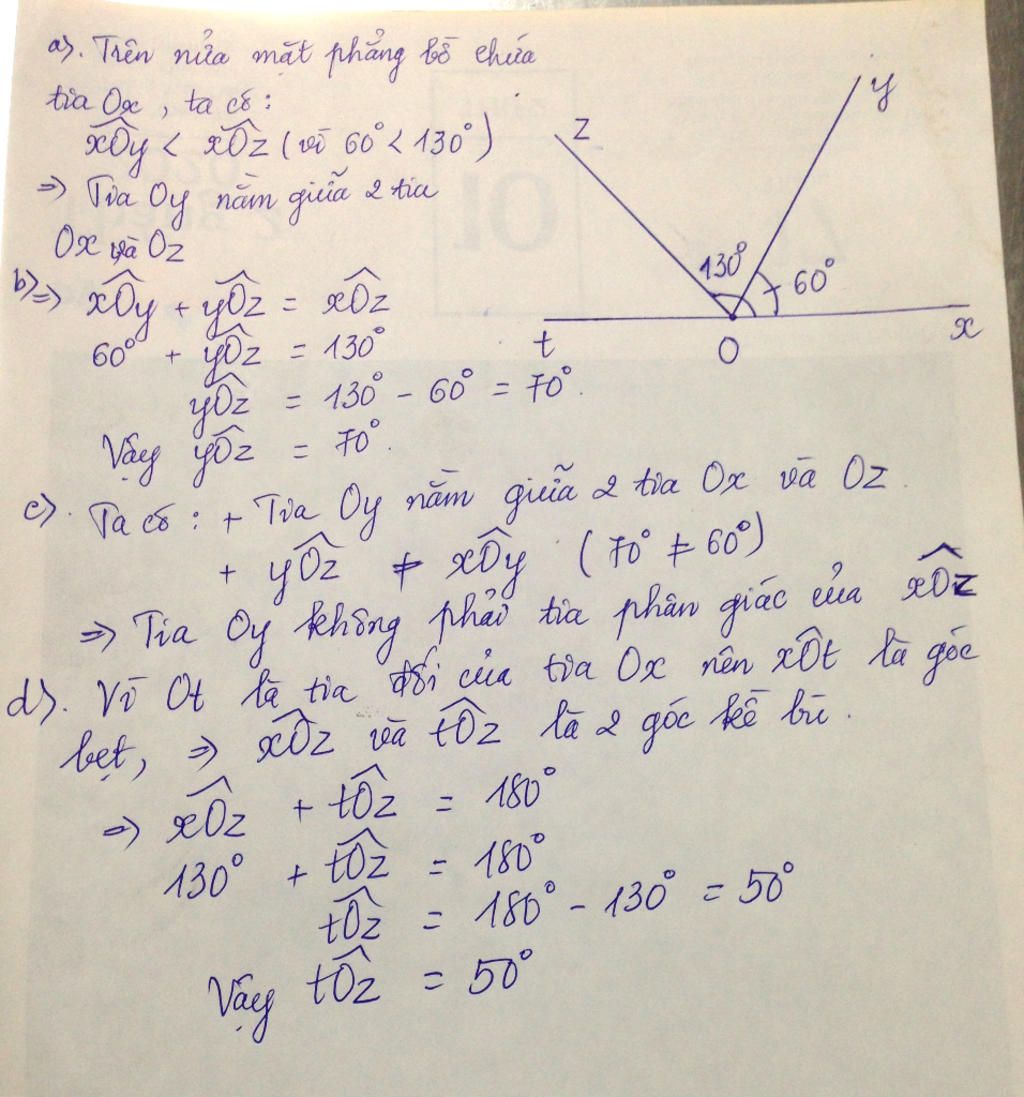 a). Trên nửa mặt phẳng bờ chứa
tia Ox, ta có:
xÔy < xÔz (vì 60° < 130°)
=> Tia Oy nằm giữa 2 tia
Ox và Oz
b) => xÔy + yÔz = xÔz
60° + yÔz = 130°
yÔz = 130° - 60° = 70°.
Vậy yÔz = 70°.
z
y
130°
60°
t
O
x
c). Ta có: + Tia Oy nằm giữa 2 tia Ox và Oz.
+ yÔz ≠ xÔy (70° ≠ 60°)
=> Tia Oy không phải tia phân giác của xÔz
d). Vì Ot là tia đối của tia Ox nên xÔt là góc
bẹt, => xÔz và tÔz là 2 góc kề bù.
=> xÔz + tÔz = 180°
130° + tÔz = 180°
tÔz = 180° - 130° = 50°
Vậy tÔz = 50°